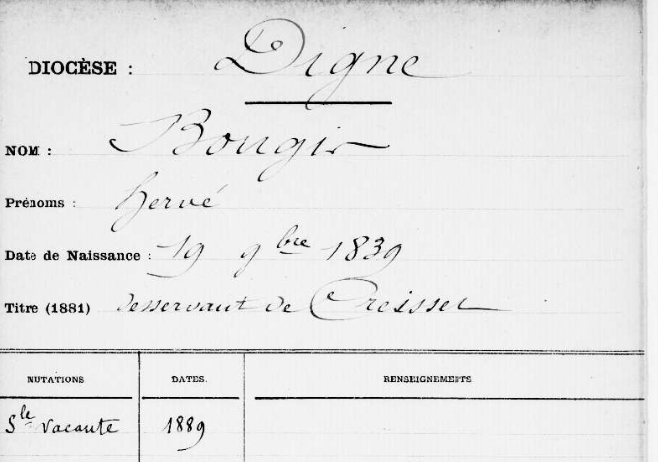 DIOCÈSE : Digne
NOM : Bongir
Prénoms : hervé
Date de Naissance : 19 9bre 1839
Titre (1881) desservant de Creisset
MUTATIONS DATES. RENSEIGNEMENTS
Sle vacante 1889